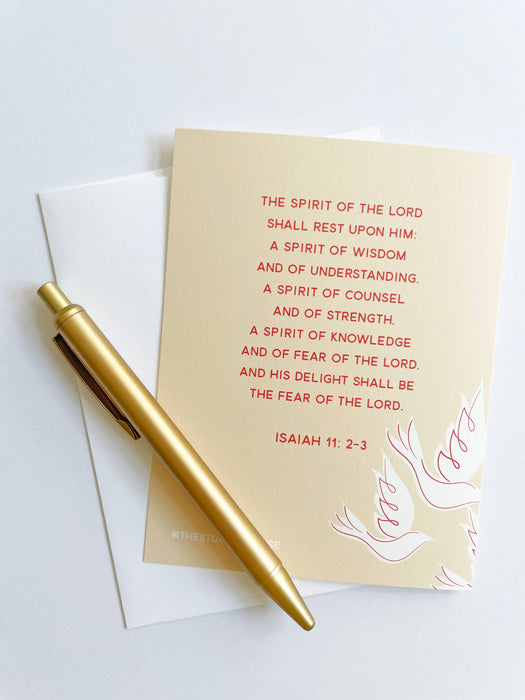 THE SPIRIT OF THE LORD
SHALL REST UPON HIM:
A SPIRIT OF WISDOM
AND OF UNDERSTANDING.
A SPIRIT OF COUNSEL
AND OF STRENGTH.
A SPIRIT OF KNOWLEDGE
AND OF FEAR OF THE LORD.
AND HIS DELIGHT SHALL BE
THE FEAR OF THE LORD.
ISAIAH 11: 2-3